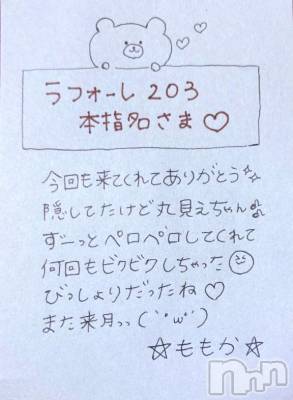 ラフォーレ 203
本指名さま♡
今回も来てくれてありがとう✨
隠してたけど丸見えちゃん♫
ずーっとペロペロしてくれて
何回もビクビクしちゃった
びっしょりだったね♡
また来月っっ(´˙ω˙`)
☆ももか☆